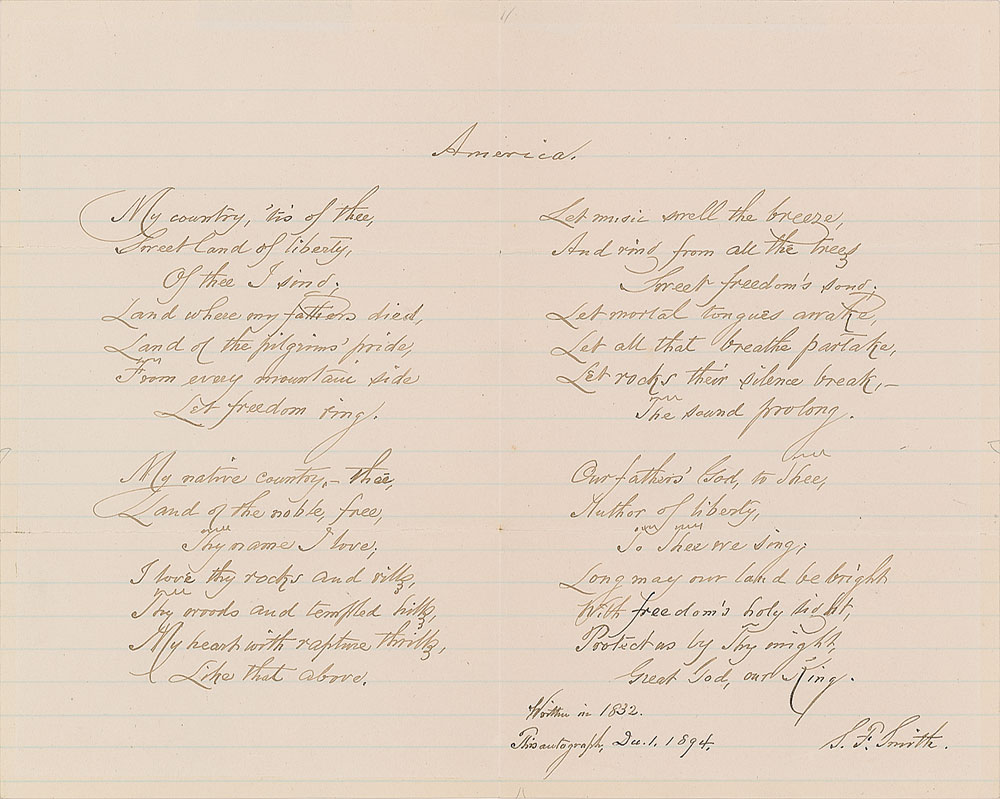 America.
My country, 'tis of thee,
Sweet land of liberty,
Of thee I sing;
Land where my fathers died,
Land of the pilgrims' pride,
From every mountain side
Let freedom ring.
My native country,– thee,
Land of the noble, free,
Thy name I love;
I love thy rocks and rills,
Thy woods and templed hills,
My heart with rapture thrills,
Like that above.
Let music swell the breeze,
And ring from all the trees
Sweet freedom's song;
Let mortal tongues awake,
Let all that breathe partake,
Let rocks their silence break,–
The sound prolong.
Our fathers' God, to Thee,
Author of liberty,
To Thee we sing;
Long may our land be bright
With freedom's holy light,
Protect us by Thy might,
Great God, our King.
Written in 1832.
This autograph, Dec. 1. 1894.
S. F. Smith.